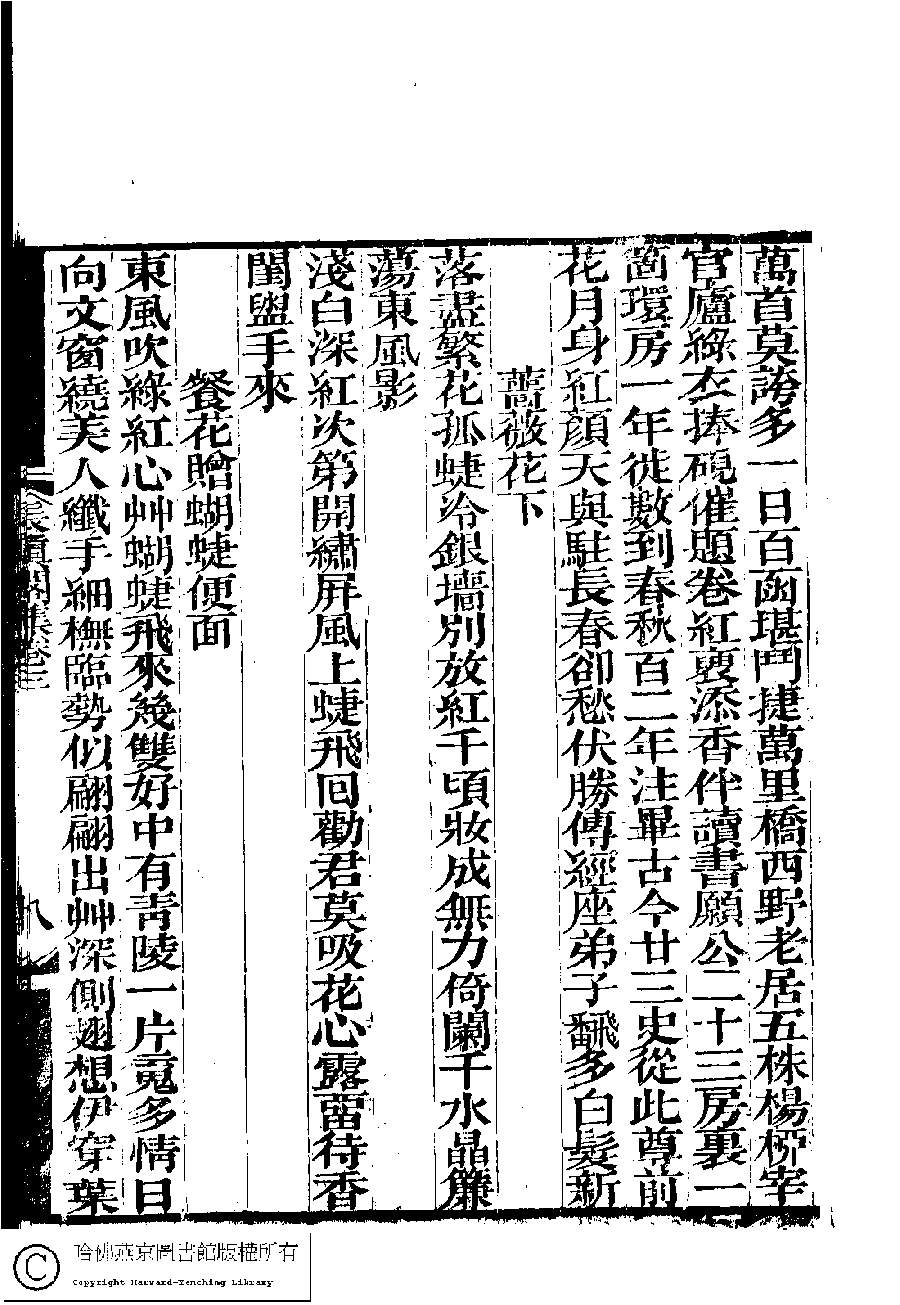 萬首莫誇多一日百函堪鬥捷萬里橋西野老居五株楊桺宰
官廬綠衣捧硯催題卷紅裏添香伴讀書願公二十三房裏一
箇環房一年徙數到春秋百二年注畢古今廿三史從此尊前
花月身紅顏天與駐長春卻愁伏勝傳經座弟子飜多白髮新
薔薇花下
落盡繁花孤蜨冷銀墻別放紅千頃妝成無力倚闌干水晶簾
蕩東風影
淺白深紅次第開繡屏風上蜨飛回勸君莫吸花心露畱待香
閨盥手來
餐花贈蝴蜨便面
東風吹綠紅心艸蝴蜨飛來幾雙好中有靑陵一片䰟多情日
向文窗繞美人纖手細橅臨勢似翩翩出艸深側翅想伊穿葉
長眞閣集卷三
八
哈佛燕京圖書館版權所有
Copyright Harvard-Yenching Library